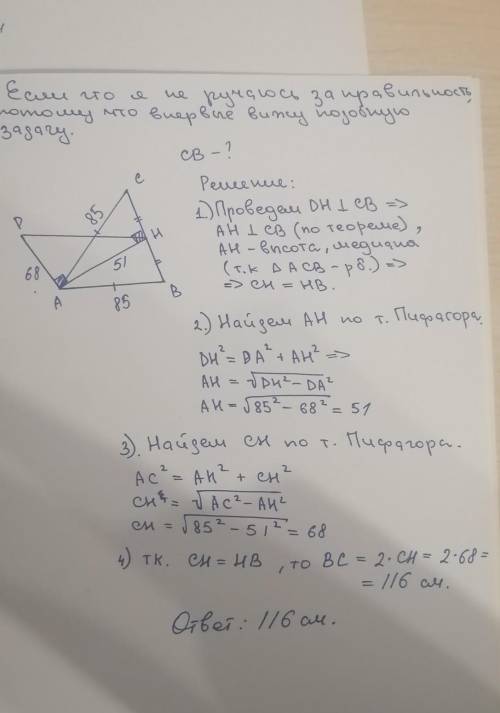 Если что я не ручаюсь за правильность,
потому что впервые вижу подобную
задачу.
CB - ?
Решение:
1) Проведем DH ⊥ CB =>
AH ⊥ CB (по теореме),
AH - высота, медиана
(т.к ΔACB - рб.) =>
=> CH = HB.
C
85
D
H
68
51
A
B
85
2.) Найдем AH по т. Пифагора.
DH² = DA² + AH² =>
AH = √DH² - DA²
AH = √85² - 68² = 51
3). Найдем CH по т. Пифагора.
AC² = AH² + CH²
CH = √AC² - AH²
CH = √85² - 51² = 68
4) тк. CH = HB, то BC = 2·CH = 2·68 =
= 116 см.
Ответ: 116 см.